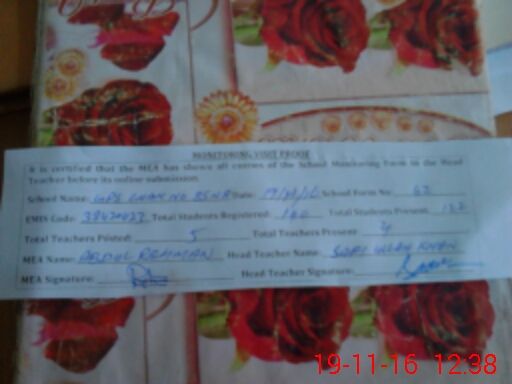 MONITORING VISIT PROOF
It is certified that the MEA has shown all entries of the School Monitoring Form to the Head
Teacher before its online submission.
School Name: GPS CHAK NO Date: School Form No: 63
EMIS Code: Total Students Registered: 160 Total Students Present: 122
Total Teachers Posted: 5 Total Teachers Present: 4
MEA Name: ABDUL REHMAN Head Teacher Name: ULLAH KHAN
MEA Signature: Head Teacher Signature:
19-11-16 12:38